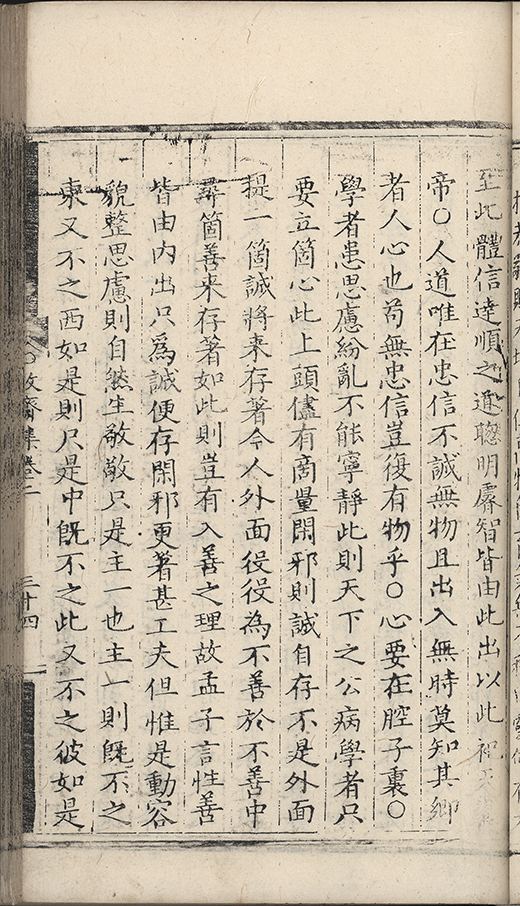 至此體信達順之道聰明睿智皆由此出以此
帝○人道唯在忠信不誠無物且出入無時莫知其鄉
者人心也苟無忠信豈復有物乎○心要在腔子裏○
學者患思慮紛亂不能寧靜此則天下之公病學者只
要立箇心此上頭儘有商量閑邪則誠自存不是外面
提一箇誠將来存著今人外面役役為不善於不善中
尋箇善来存著如此則豈有入善之理故孟子言性善
皆由内出只爲誠便存閑邪更著甚工夫但惟是動容
貌整思慮則自然生敬敬只是主一也主一則旣不之
東又不之西如是則只是中旣不之此又不之彼如是
齋集卷二
三十四